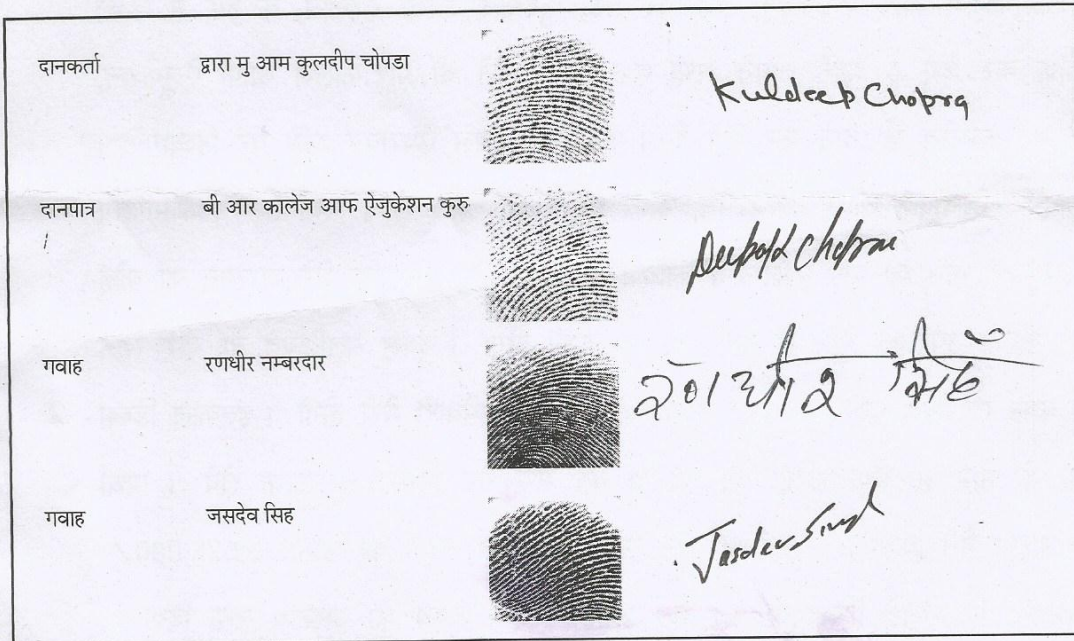 दानकर्ता द्वारा मु आम कुलदीप चोपडा Kuldeep Chopra
दानपात्र बी आर कालेज आफ ऐजुकेशन कुरु Deepak Chopra
गवाह रणधीर नम्बरदार रणधीर सिंह
गवाह जसदेव सिह Jasdev Singh